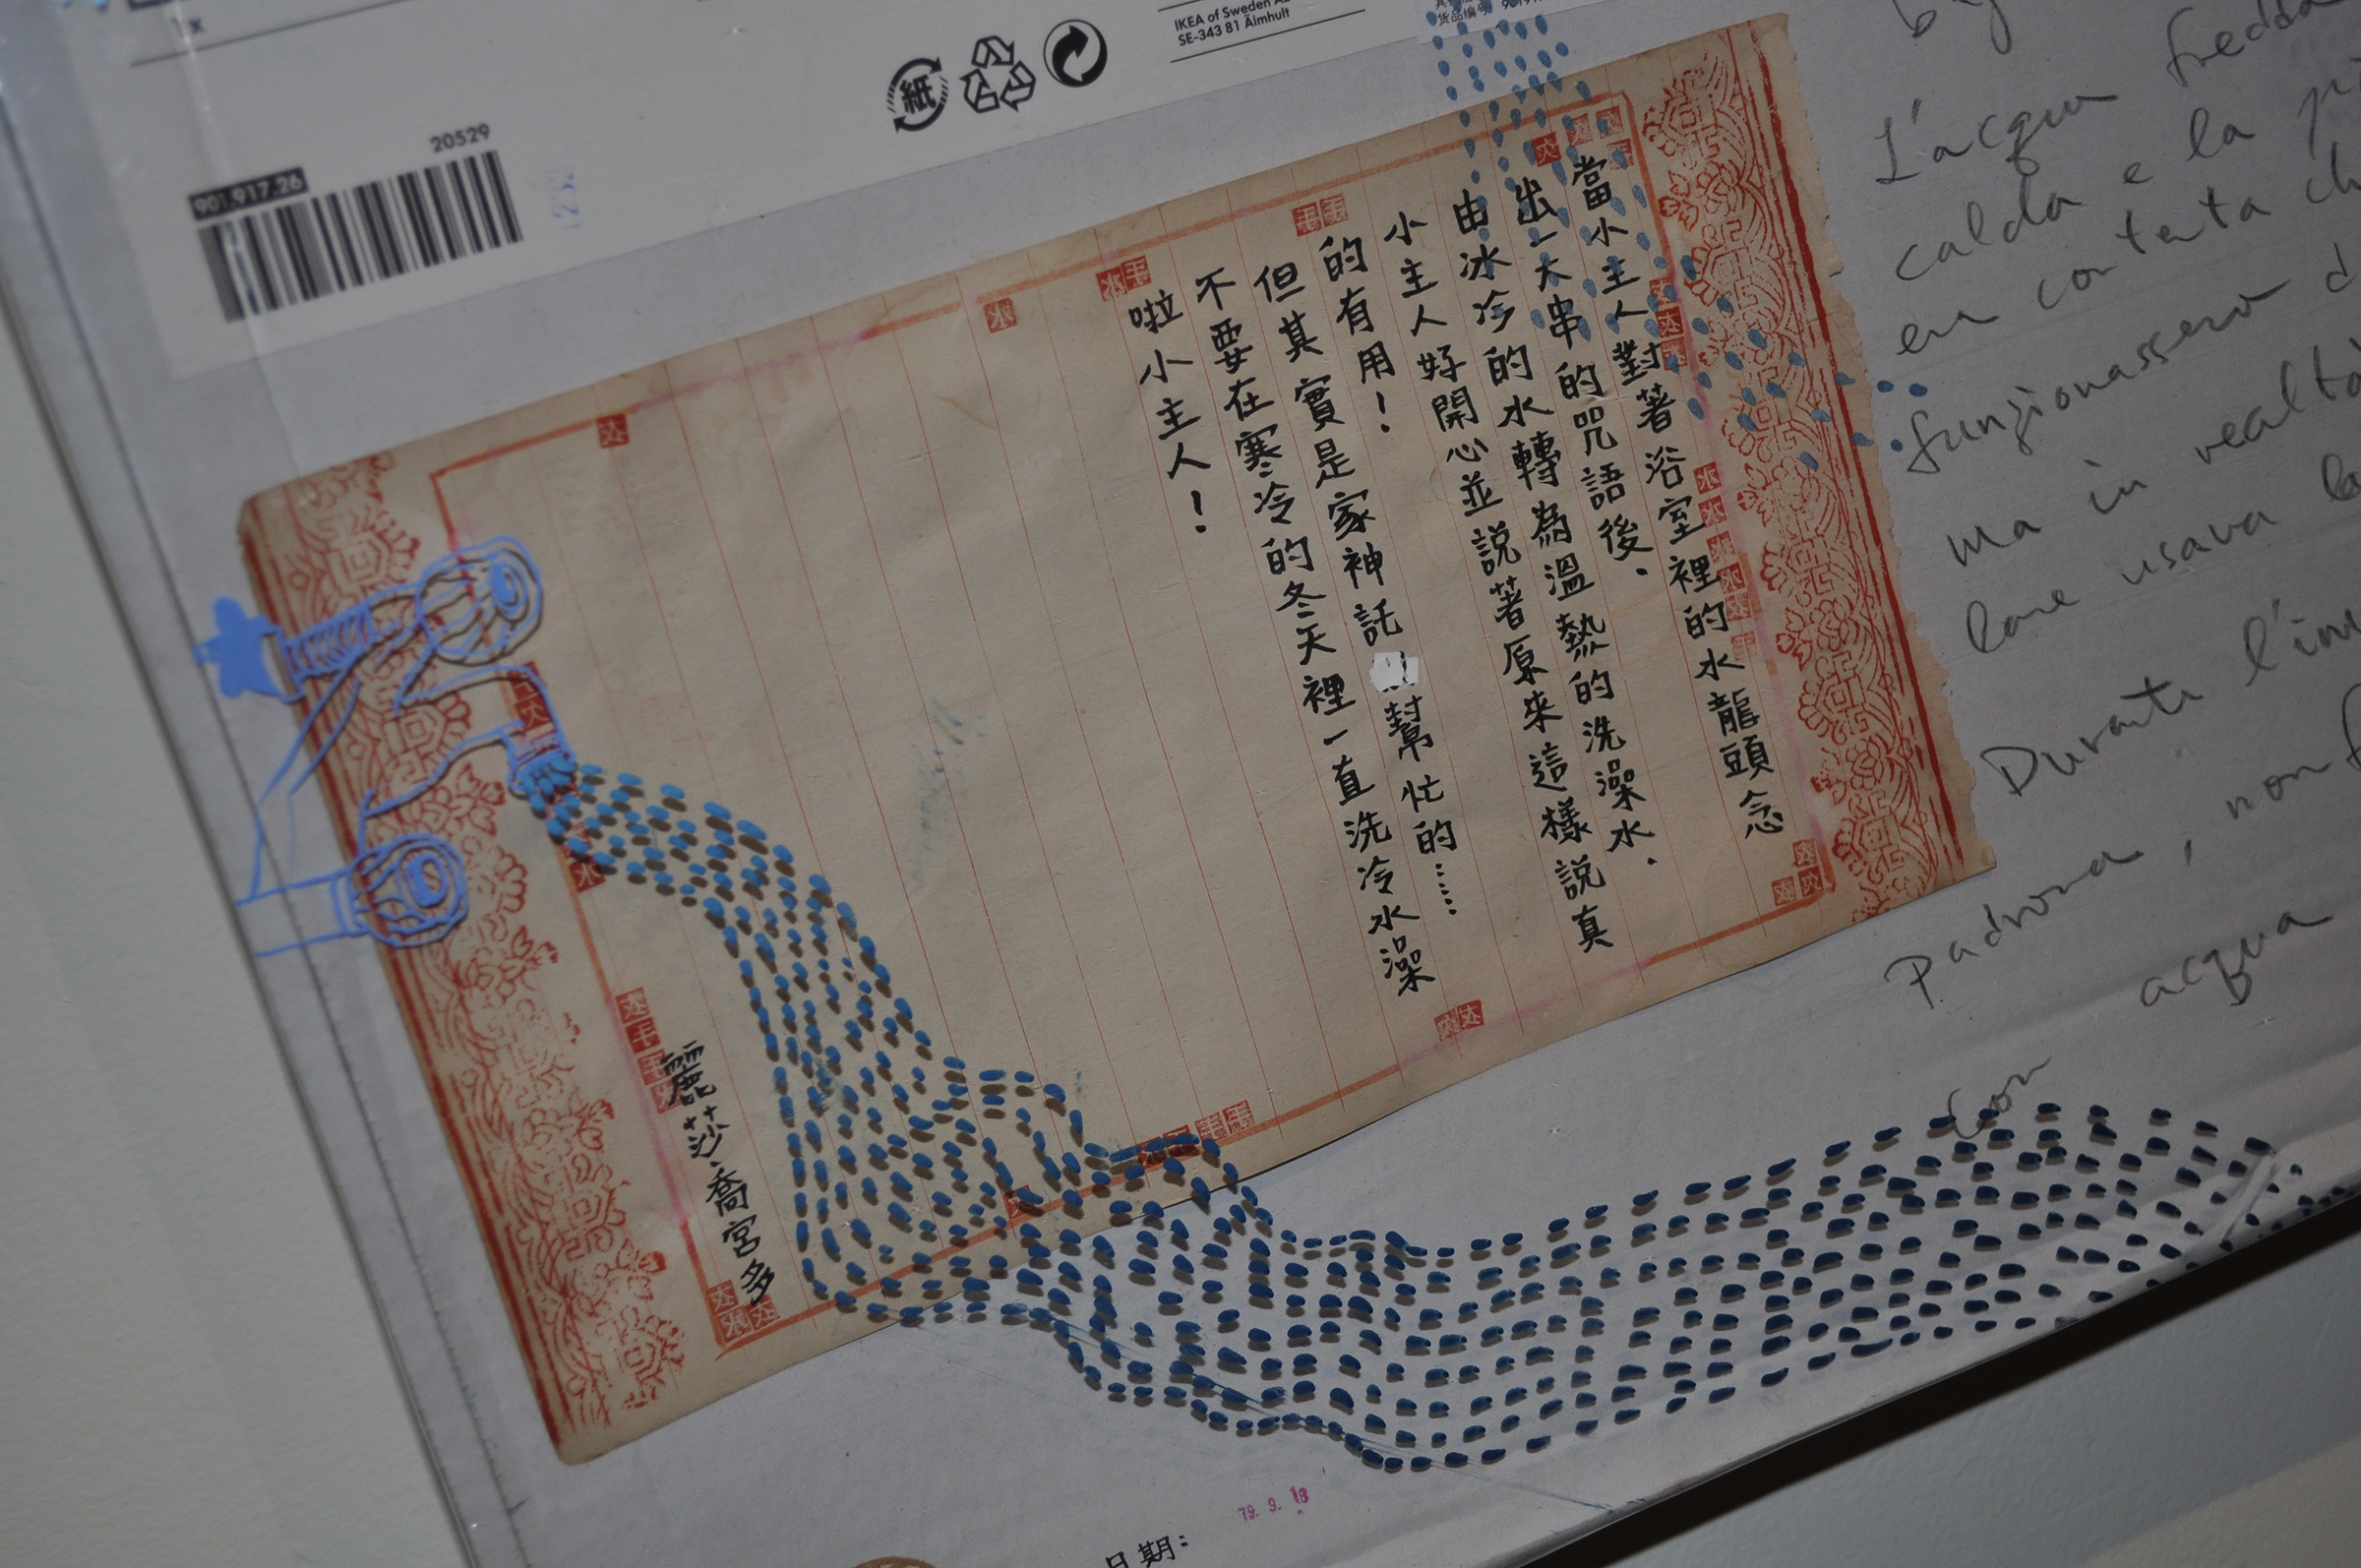 1x
IKEA of Sweden
SE-343 81 Älmhult
货品编号
20529
901.917.26
紙
當小主人對著浴室裡的水龍頭念
出一大串的咒語後、
由冰冷的水轉為溫熱的洗澡水、
小主人好開心並說著原來這樣說真
的有用！
但其實是家神託幫忙的……
不要在寒冷的冬天裡一直洗冷水澡
啦小主人！
麗莎·喬宮多
L'acqua fredda
calda e la
era contenta
funzionassero
ma in realtà
lare usava
Durante
Padrona, non
acqua
con
79. 9. 18
日期：